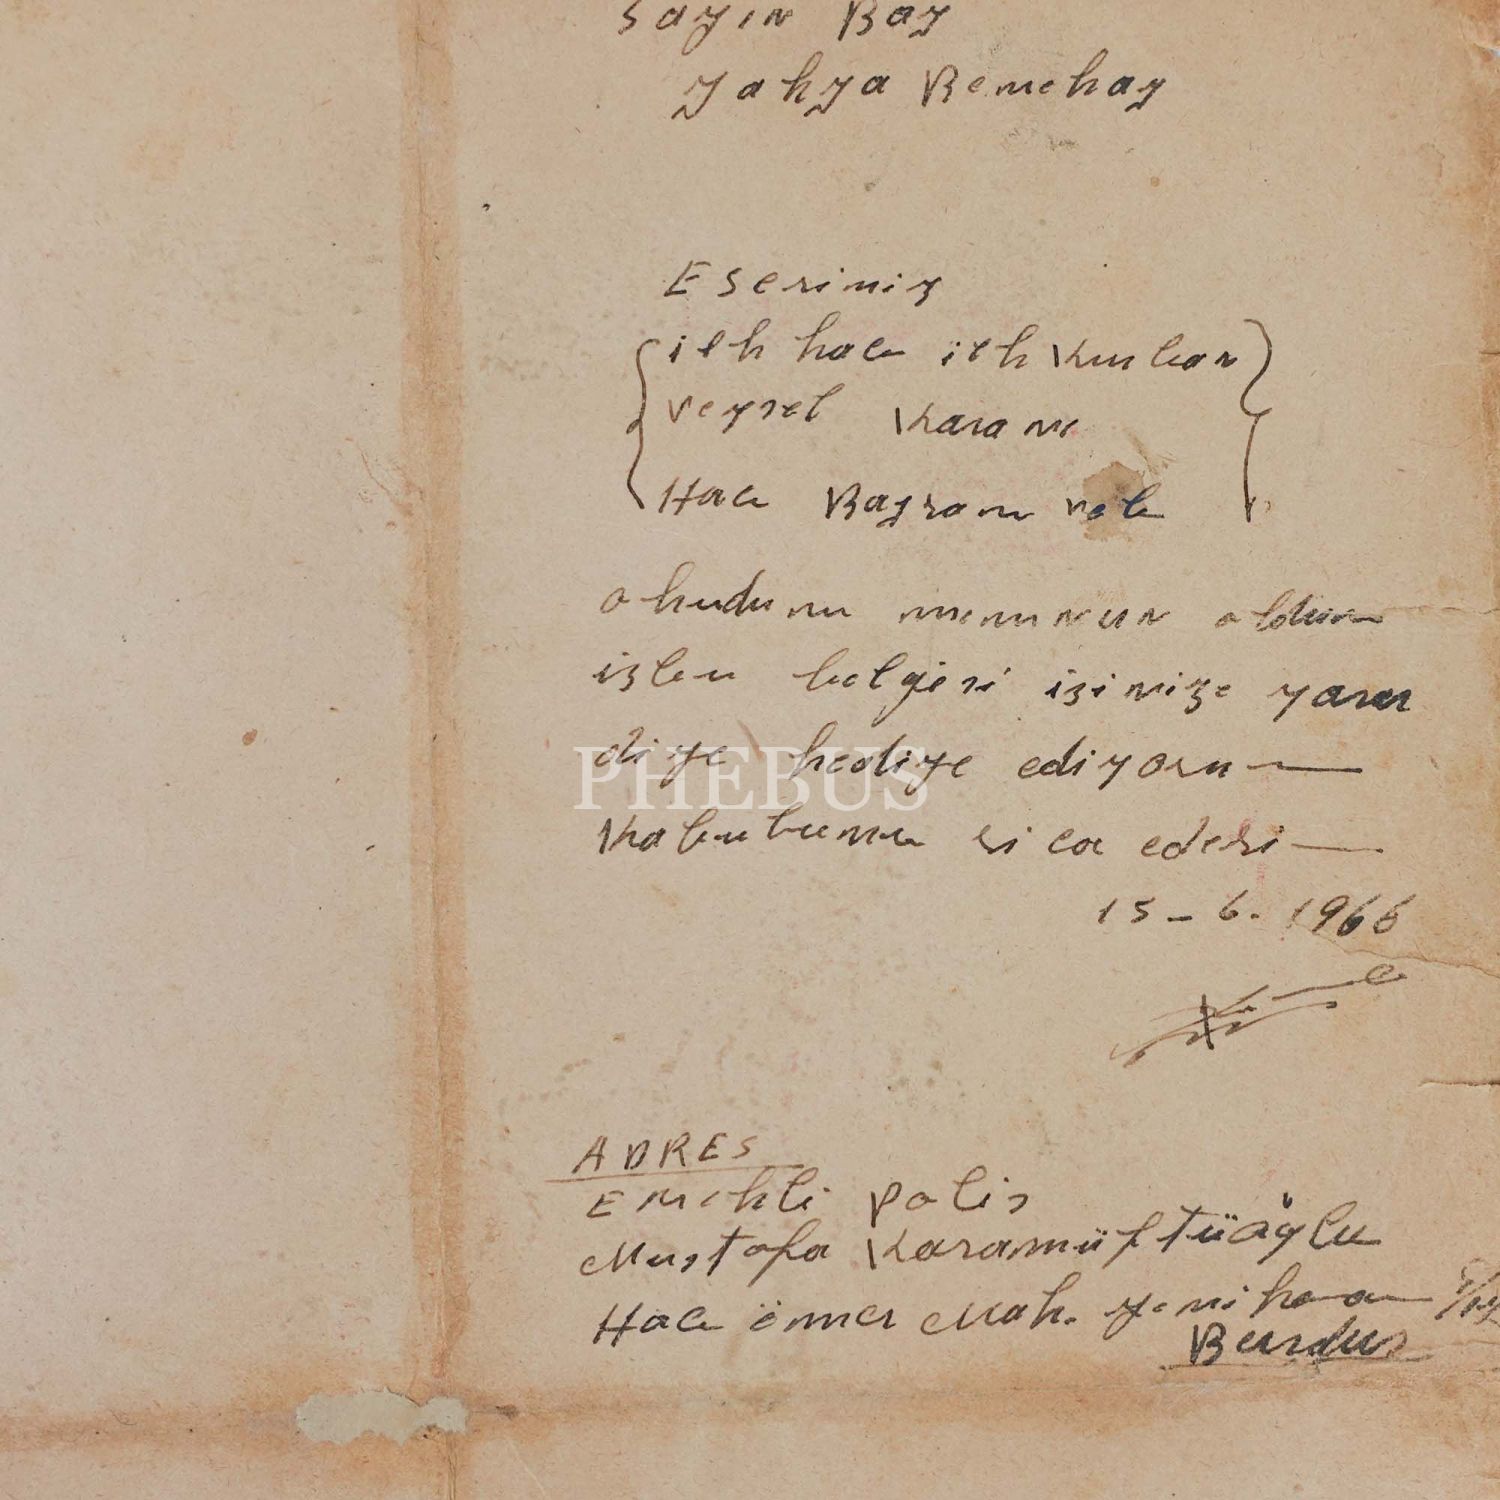 Sayın Bay
Yahya Benekay
Eseriniz
ilk hacı ilk Kurban
veysel Karani
Hacı Bayram veli
okudum memnun oldum
izleu belgesi işinize yarar
diye hediye ediyorum
Kabulunu rica ederi
15-6.1966
ADRES
Emekli polis
Mustafa Karamüftüoğlu
Hacı ömer Mah. yeni han
Burdur
PHEBUS